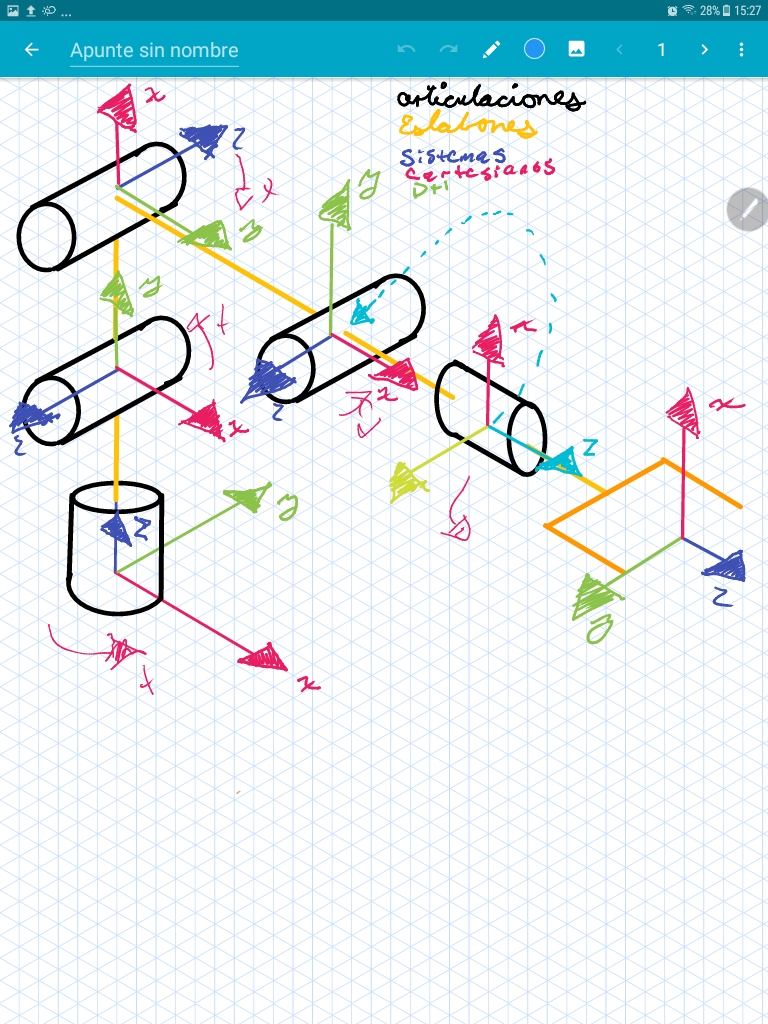 28% 15:27
Apunte sin nombre
1
articulaciones
Eslabones
Sistemas
cartesianos
D-H
x
z
x
z
y
y
t
x
z
z
x
x
z
x
z
y
z
y
t
x